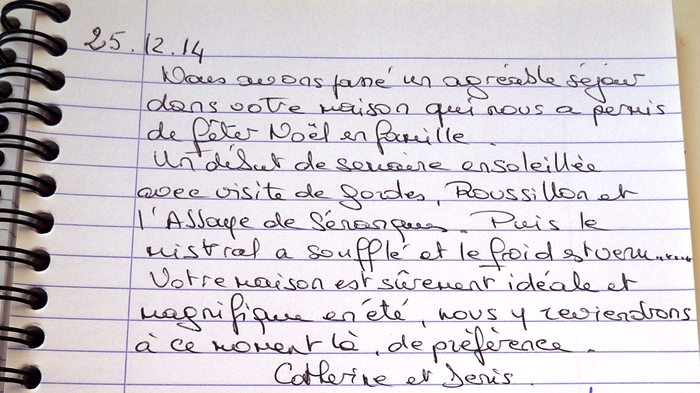 25.12.14
Nous avons passé un agréable séjour
dans votre maison qui nous a permis
de fêter Noël en famille.
Un début de semaine ensoleillée
avec visite de Gordes, Roussillon et
l'Abbaye de Sénanques. Puis le
mistral a soufflé et le froid est venu......
Votre maison est sûrement idéale et
magnifique en été, nous y reviendrons
à ce moment là, de préférence.
Catherine et Denis.